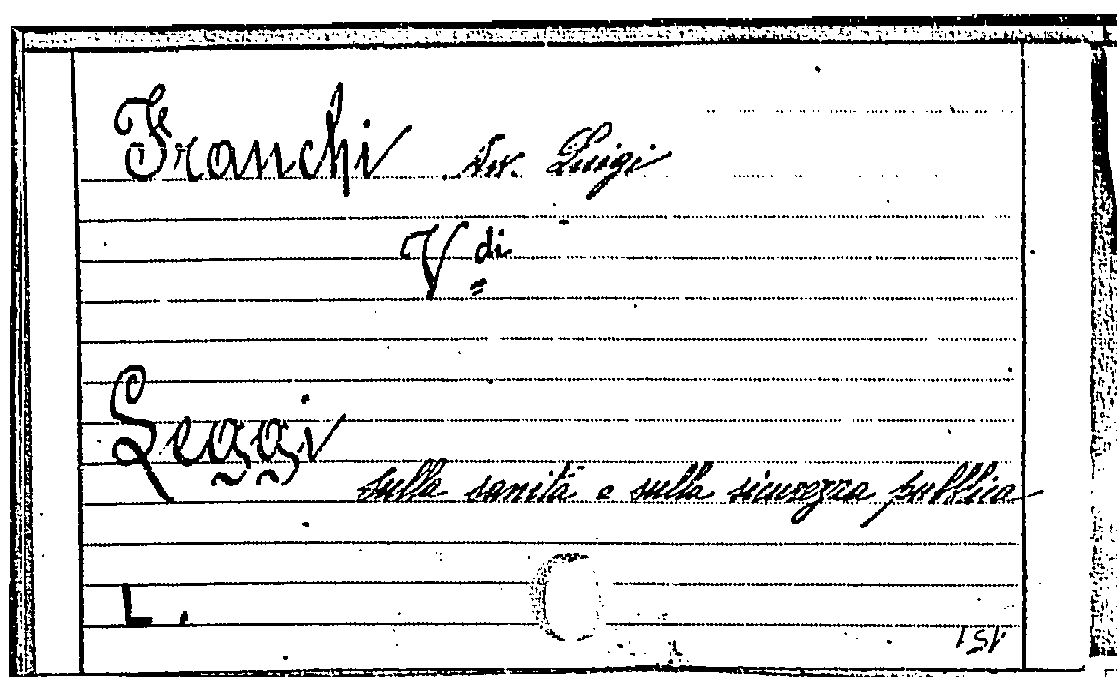 Franchi Avv. Luigi
V di
Leggi
sulla sanità e sulla sicurezza pubblica
L.
151